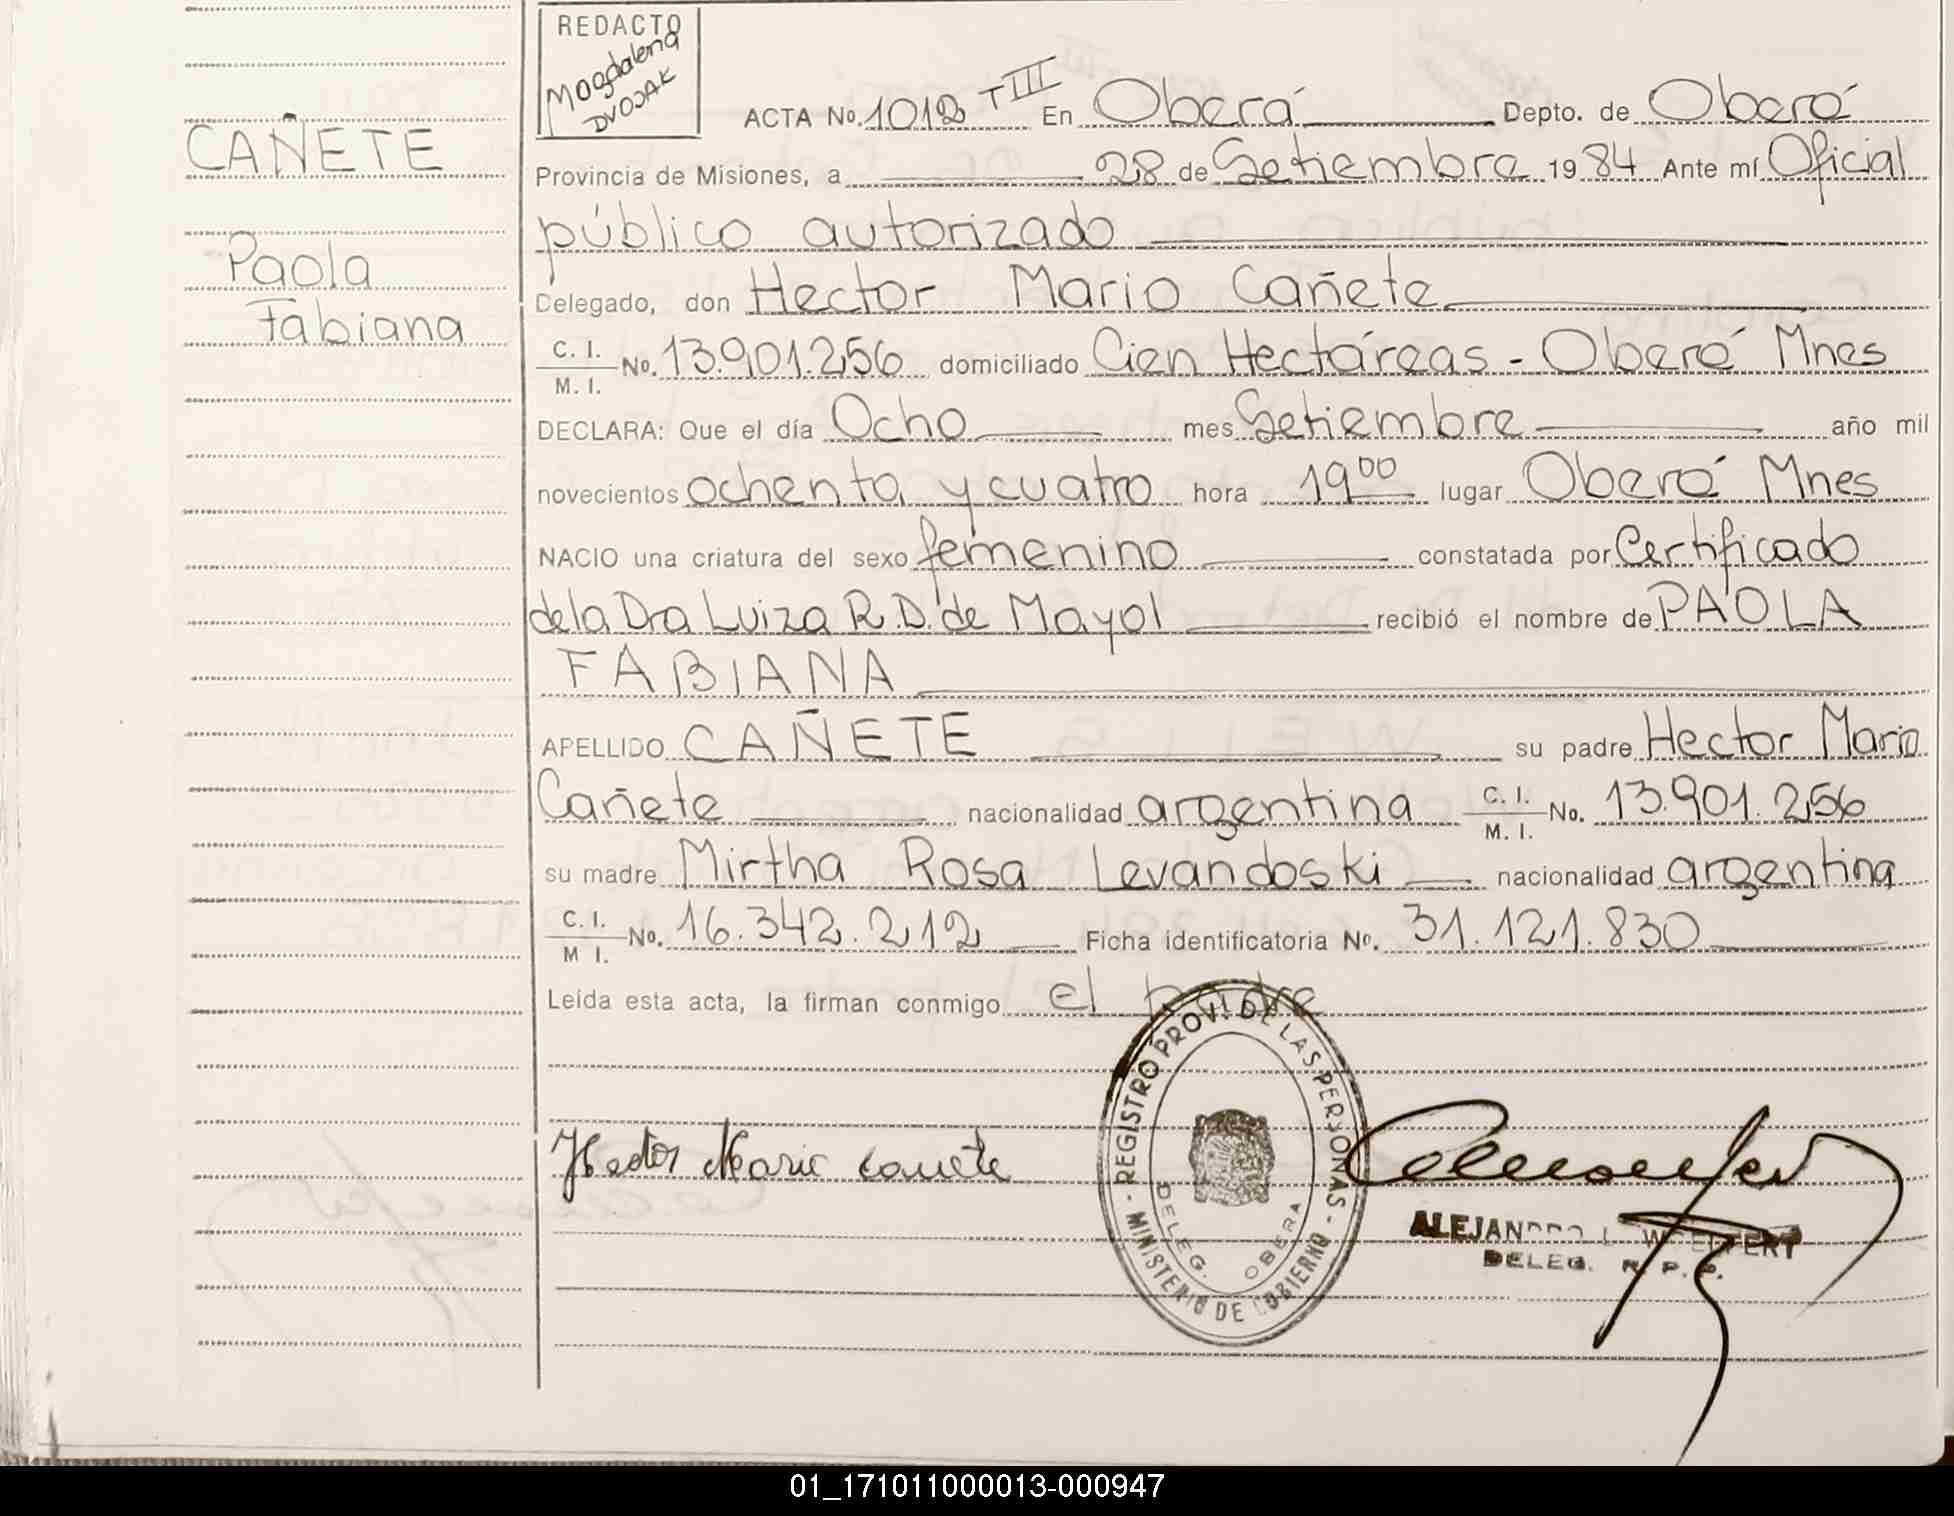 REDACTO
Magdalena
DVOJAK
ACTA No. 1012 T III En Oberá Depto. de Oberá
CAÑETE
Provincia de Misiones, a 28 de Setiembre 1984 Ante mí Oficial
público autorizado
Paola
Delegado, don Hector Mario Cañete
Fabiana
C. I.
M. I. No. 13.901.256 domiciliado Cien Hectáreas - Oberá Mnes
DECLARA: Que el día Ocho mes Setiembre año mil
novecientos ochenta y cuatro hora 19 00 lugar Oberá Mnes
NACIO una criatura del sexo femenino constatada por Certificado
de la Dra Luiza R.D. de Mayol recibió el nombre de PAOLA
FABIANA
APELLIDO CAÑETE su padre Hector Mario
Cañete nacionalidad argentina C. I. M. I. No. 13.901.256
su madre Mirtha Rosa Levandoski nacionalidad argentina
C. I. M I. No. 16.342.212 Ficha identificatoria No. 31.121.830
Leída esta acta, la firman conmigo el padre
REGISTRO PROV. DE LAS PERSONAS - MINISTERIO DE GOBIERNO -
DELEG. OBERA
Hector Mario Cañete
ALEJANDRO L.
DELEG. R. P. P.
01_171011000013-000947